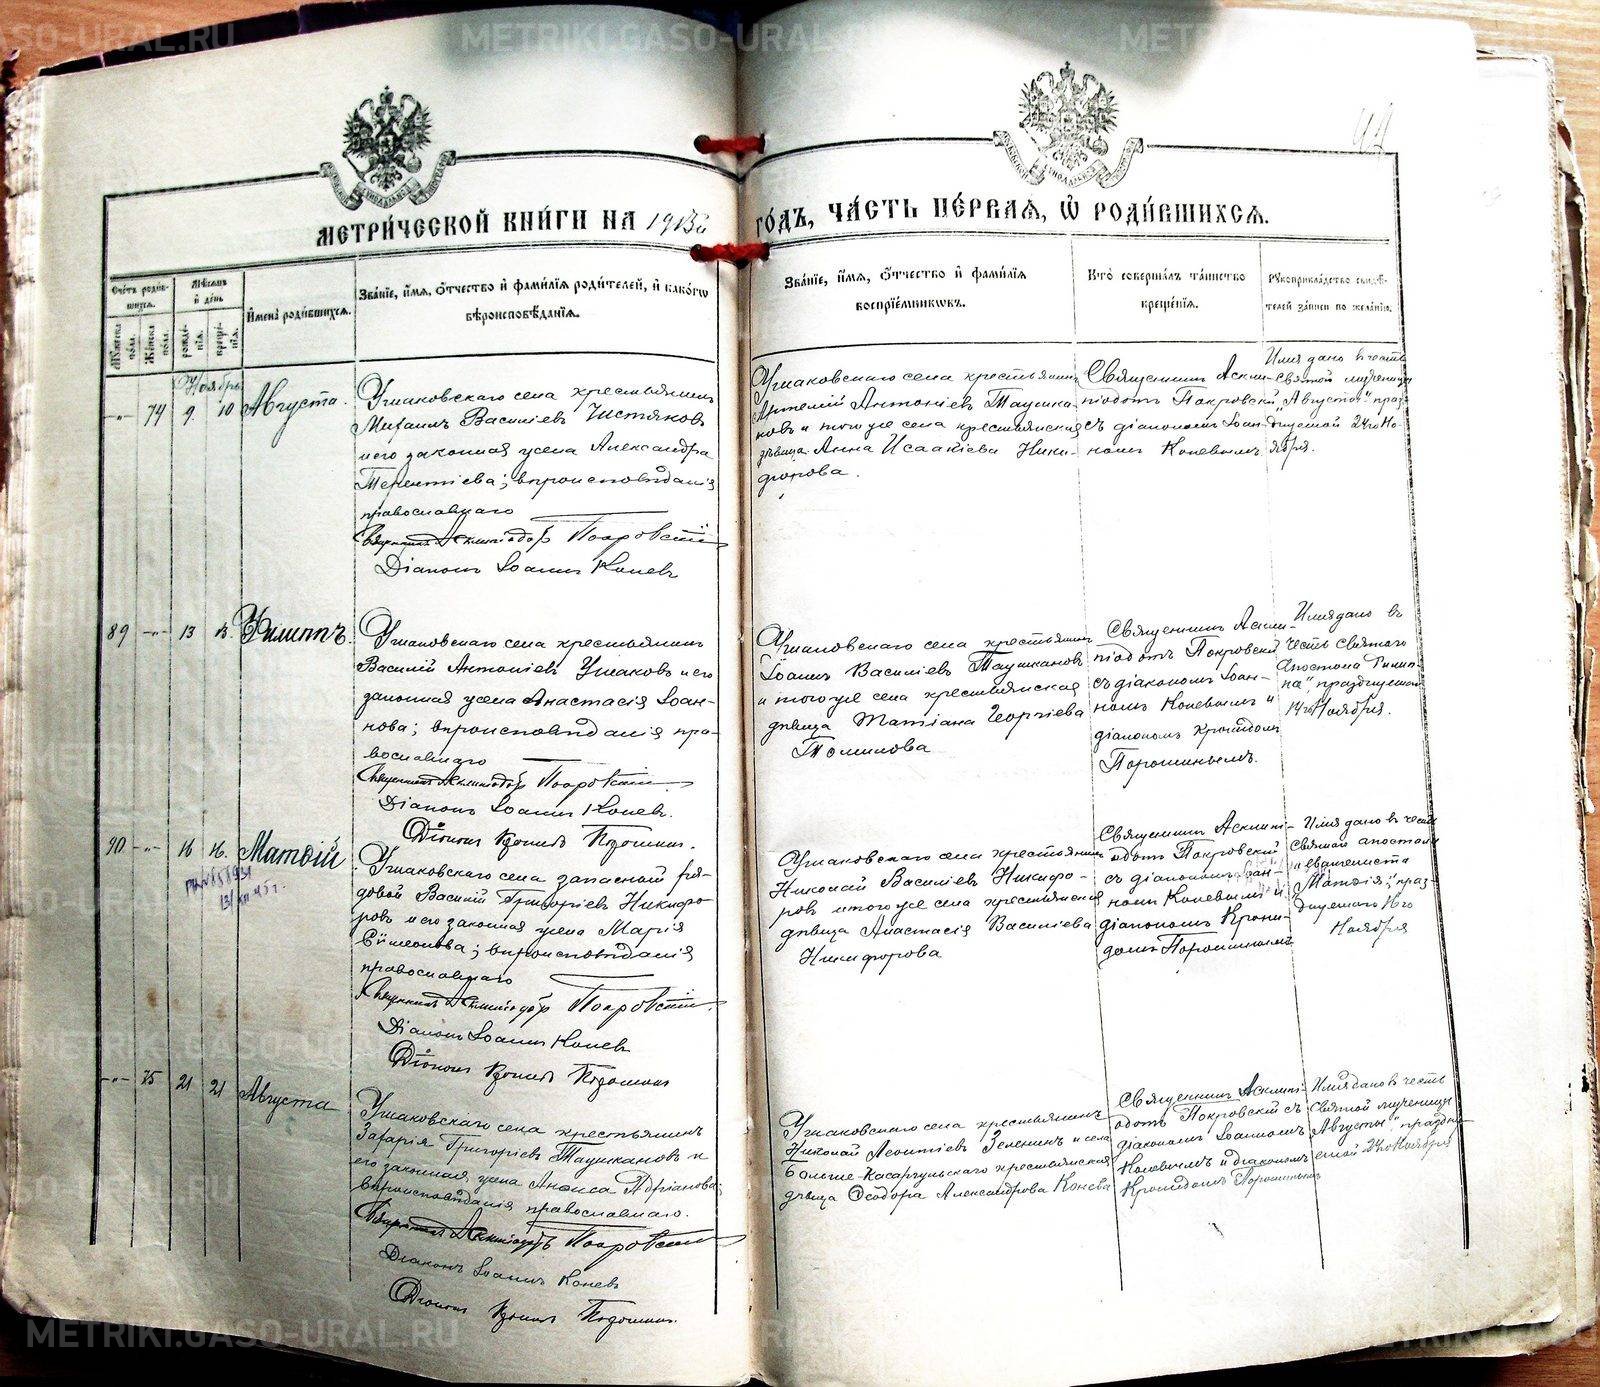 METRIKI.GASO-URAL.RU
МЕТРИ́ЧЕСКОЙ КНИ́ГИ НА 1913й
ГО́ДЪ, ЧА́СТЬ ПЕ́РВАѦ, Ѡ҆ РОДИ́ВШИХСѦ.
94
Сче́тъ роди́вшихсѧ.
Му́жеска по́ла.
Же́нска по́ла.
Мѣ́сѧцъ и҆ де́нь
рожде́нїѧ.
креще́нїѧ.
И҆мена̀ роди́вшихсѧ.
Зва́нїе, и҆́мѧ, ѻ҆́тчество и҆ фами́лїѧ роди́телей, и҆ како́гѡ вѣроисповѣ́данїѧ.
Зва́нїе, и҆́мѧ, ѻ҆́тчество и҆ фами́лїѧ воспрїе́мникѡвъ.
Кто̀ соверша́лъ та́инство креще́нїѧ.
Рꙋкоприкла́дство свидѣ́телей за́писи по жела́нїю.
Ноябрь
-"- 74 9 10 Августа.
Ушаковскаго села крестьянинъ
Михаилъ Василіевъ Чистяковъ
и его законная жена Александра
Терентіева; вѣроисповѣданія
православнаго
Священникъ Асклипіодотъ Покровскій
Діаконъ Іоаннъ Коневъ
Ушаковскаго села крестьянинъ
Артемій Антоніевъ Таушка-
новъ и того же села крестьянская
дѣвица Анна Исаакіева Ники-
форова.
Священникъ Аскли-
піодотъ Покровскій
съ діакономъ Іоан-
номъ Коневымъ
Имя дано въ честь
святой мученицы
"Августы" праз-
днуемой 24го Но-
ября.
89 -"- 13 13. Филиппъ.
Ушаковскаго села крестьянинъ
Василій Антоніевъ Ушаковъ и его
законная жена Анастасія Іоан-
нова; вѣроисповѣданія пра-
вославнаго
Священникъ Асклипіодотъ Покровскій
Діаконъ Іоаннъ Коневъ.
Діаконъ Кронидъ Порошинъ.
Ушаковскаго села крестьянинъ
Іоаннъ Василіевъ Таушкановъ
и того же села крестьянская
дѣвица Татіана Георгіева
Томилова
Священникъ Аскли-
піодотъ Покровскій
съ діакономъ Іоан-
номъ Коневымъ и
діакономъ Кронидомъ
Порошинымъ.
Имя дано въ
честь святого
Апостола "Филип-
па", празднуемаго
14го Ноября.
90 -"- 16 16. Матѳій
Ушаковскаго села запасной ря-
довой Василій Григоріевъ Никифо-
ровъ и его законная жена Марія
Сѵмеонова; вѣроисповѣданія
православнаго
Священникъ Асклипіодотъ Покровскій.
Діаконъ Іоаннъ Коневъ
Діаконъ Кронидъ Порошинъ
Ушаковскаго села крестьянинъ
Николай Василіевъ Никифо-
ровъ и того же села крестьянская
дѣвица Анастасія Василіева
Никифорова
Священникъ Асклипі-
одотъ Покровскій
съ діакономъ Іоан-
номъ Коневымъ и
діакономъ Крони-
домъ Порошинымъ
Имя дано въ честь
святаго апостола
и евангелиста
"Матѳія", праз-
днуемаго 16го
Ноября
-"- 75 21 21 Августа
Ушаковскаго села крестьянинъ
Захарія Григоріевъ Таушкановъ и
его законная жена Анѳиса Адріанова
вѣроисповѣданія православнаго.
Священникъ Асклипіодотъ Покровскій
Діаконъ Іоаннъ Коневъ
Діаконъ Кронидъ Порошинъ.
Ушаковскаго села крестьянинъ
Николай Леонтіевъ Зеленинъ и села
Больше-Касаргульскаго крестьянская
дѣвица Ѳеодора Александрова Конева
Священникъ Асклипі-
одотъ Покровскій съ
діакономъ Іоанномъ
Коневымъ и діакономъ
Кронидомъ Порошинымъ
Имя дано въ честь
святой мученицы
"Августы", праздну-
емой 24го Ноября
METRIKI.GASO-URAL.RU